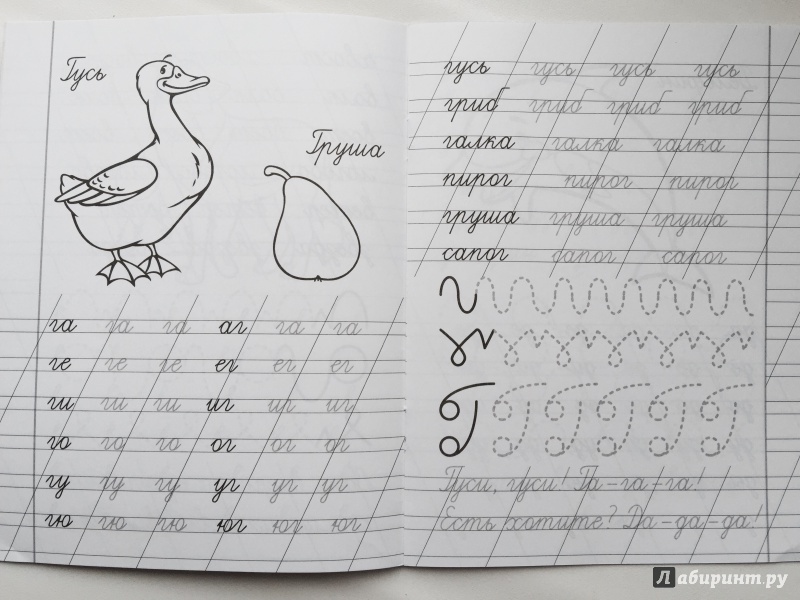 Гусь
Груша
га га га аг га га
ге ге ге ег ег ег
ги ги ги иг иг иг
го го го ог ог ог
гу гу гу уг уг уг
гю гю гю юг юг юг
гусь гусь гусь гусь
гриб гриб гриб гриб
галка галка галка
пирог пирог пирог
груша груша груша
сапог сапог сапог
Гуси, гуси! Га-га-га!
Есть хотите? Да-да-да!
Лабиринт.ру